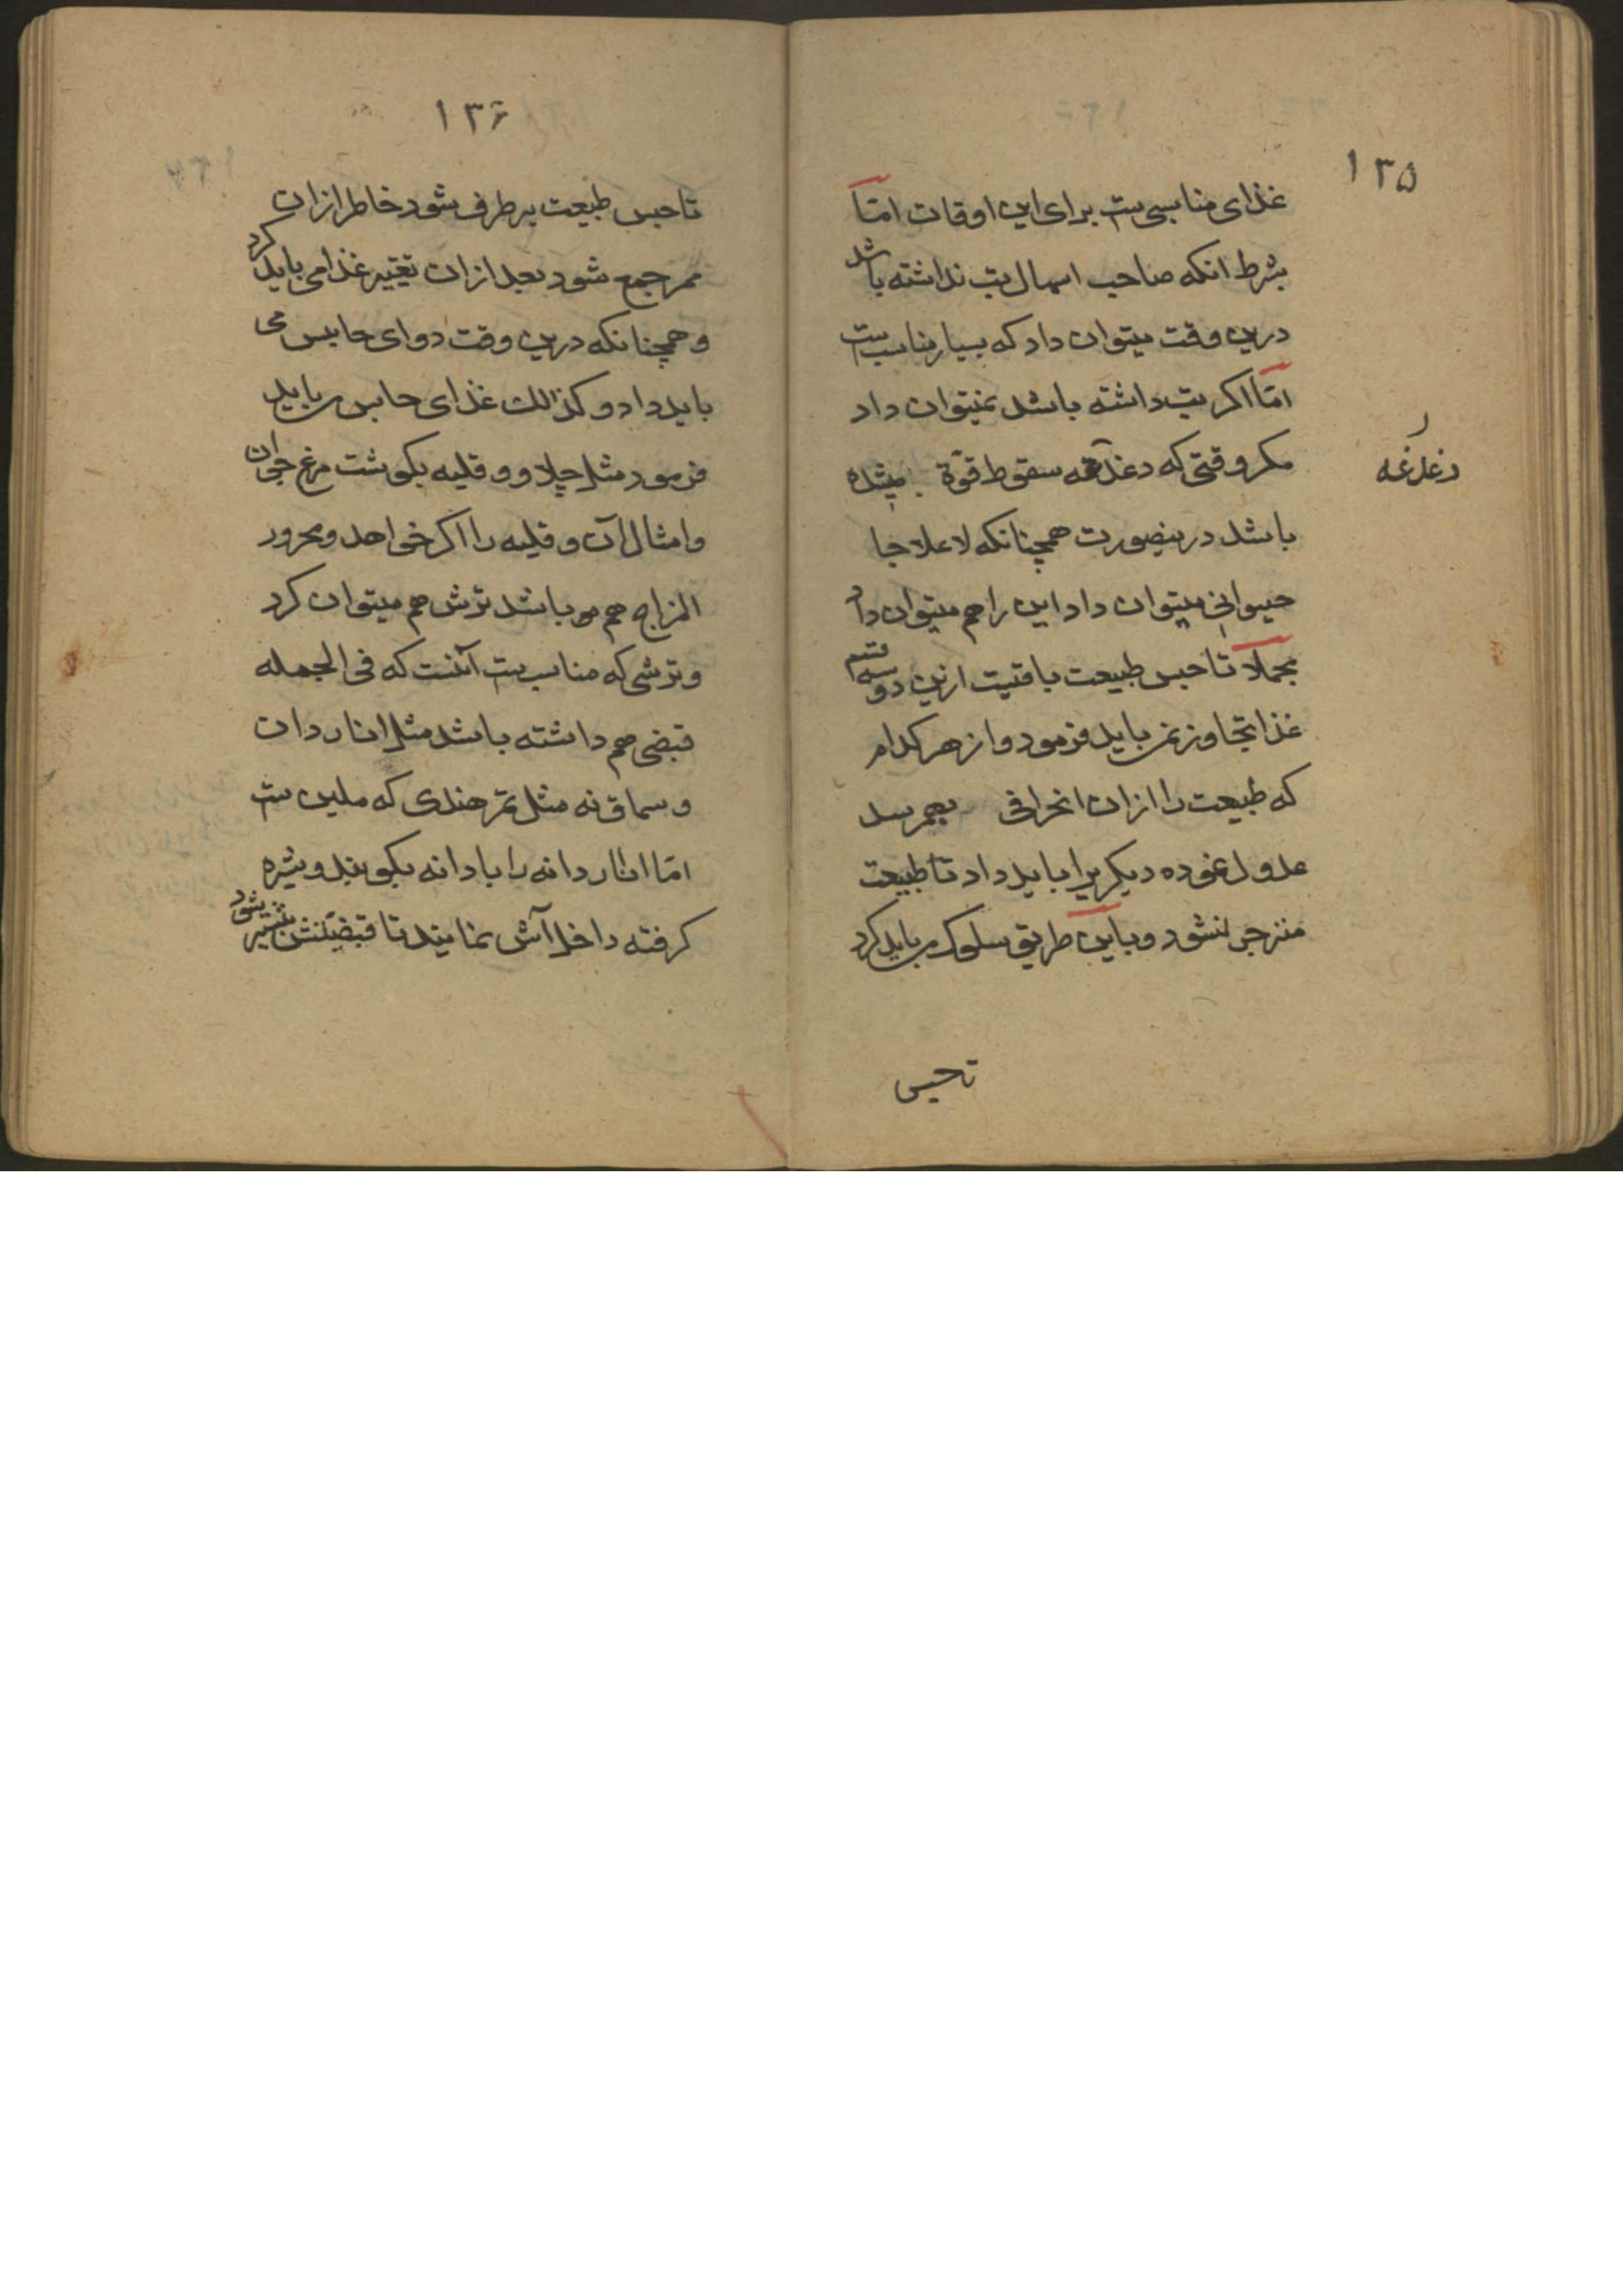 ۱۳۵
غذای مناسبی ست برای این اوقات امّا
بشرط انکه صاحب اسهال تب نداشته باشد
درین وقت میتوان داد که بسیار مناسب ست
امّا اکر تب داشته باشد نمیتوان داد
مکر وقتی که دغدغه سقوط قوّة شده
دغدغه
باشد درینصورت همچنانکه لاعلاجا
حیوانی میتوان داد این را هم میتوان داد
مجملا تا حبس طبیعت باقیست ازین دو سه قسم
غذا تجاوز نمی باید فرمود و از هر کدام
که طبیعت را ازان انحرافی بهمرسد
عدول نموده دیکریرا باید داد تا طبیعت
منزجر نشود و باین طریق سلوک می باید کرد
تا حبس
۱۳۶
تا حبس طبیعت برطرف شود خاطر ازان
ممر جمع شود بعد ازان تغییر غذا می باید کرد
و همچنانکه درین وقت دوای حابس می
باید داد و کذالک غذای حابس می باید
فرمود مثل چلاو و قلیه بکوشت مرغ جوان
و امثال آن و قلیه را اکر خواهد و محرور
المزاج هم بوده باشد ترش هم میتوان کرد
و ترشی که مناسب ست آنست که فی الجمله
قبضی هم داشته باشد مثل انار دان
و سماق نه مثل تمر هندی که ملین ست
امّا انار دانه را با دانه بکوبند و شیره
کرفته داخل آش نمایند تا قبضیتش بیشتر شود